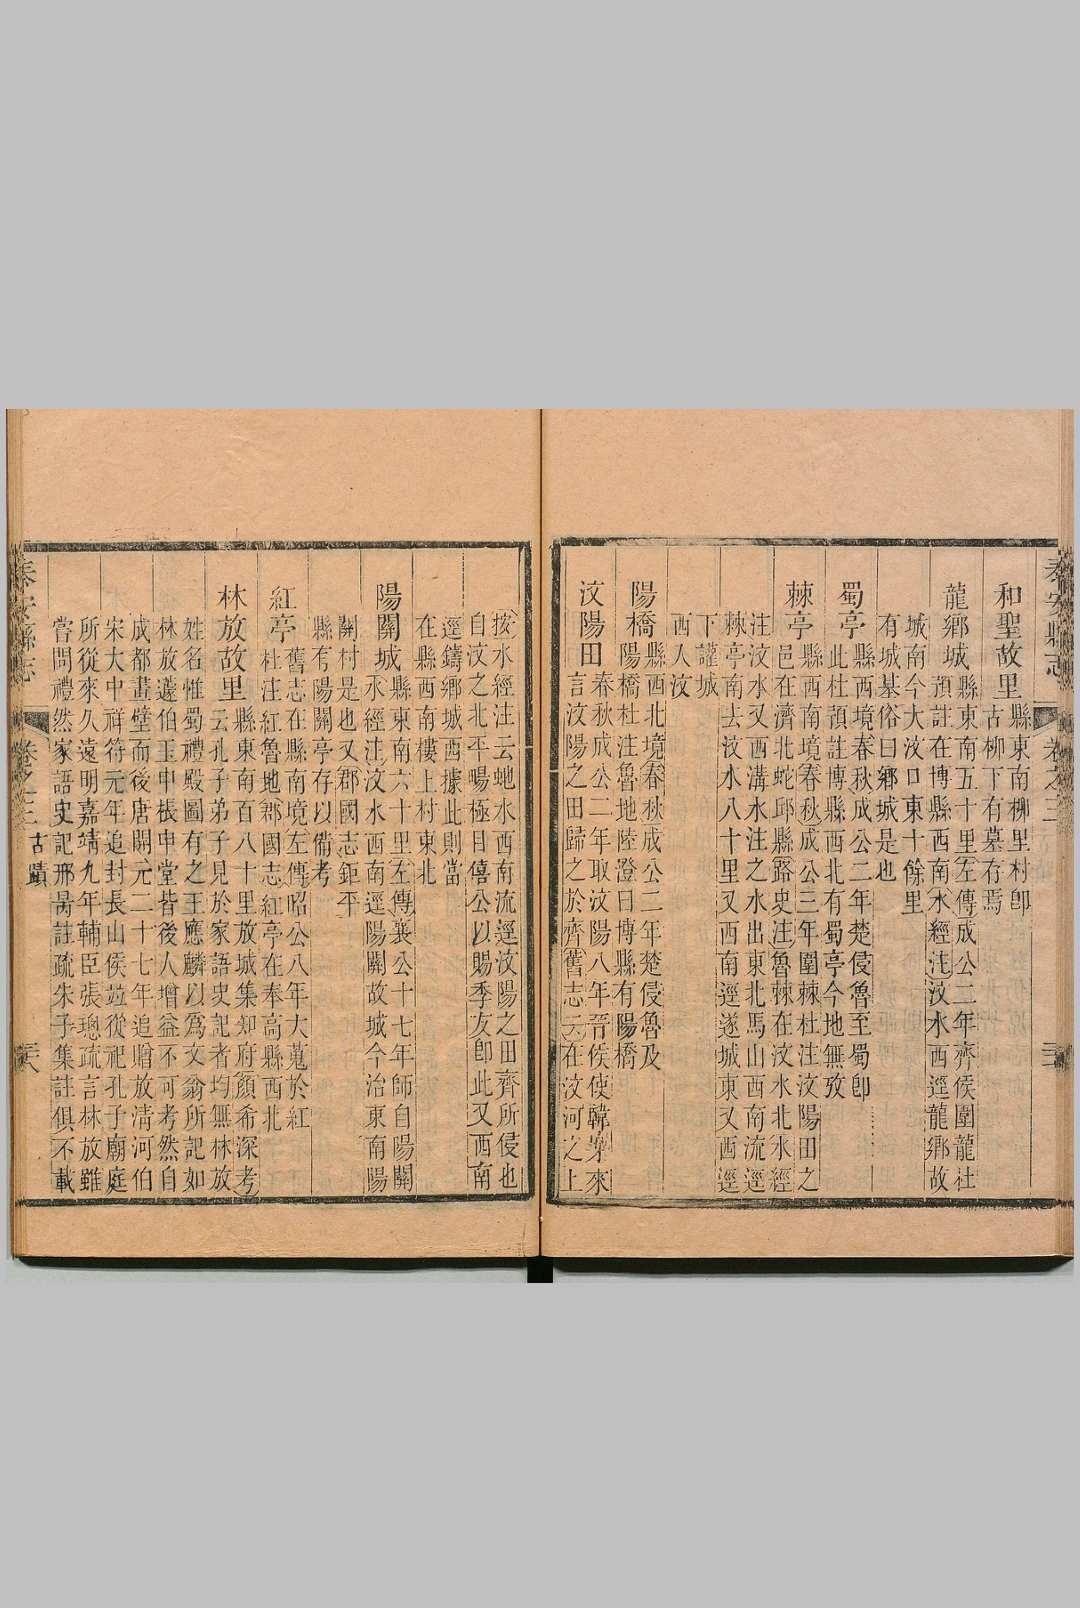 泰安縣志
卷之三
和聖故里縣東南柳里村卽
古柳下有墓存焉
龍鄉城縣東南五十里左傳成公二年齊侯圍龍社
預註在博縣西南水經注汶水西逕龍鄉故
城南今大汶口東十餘里
有城基俗曰鄉城是也
蜀亭縣西境春秋成公二年楚侵魯至蜀卽
此杜預註博縣西北有蜀亭今地無攷
棘亭縣西南境春秋成公三年圍棘杜注汶陽田之
邑在濟北蛇邱縣路史注魯棘在汶水北水經
注汶水又西溝水注之水出東北馬山西南流逕
棘亭南去汶水八十里又西南逕遂城東又西逕
下讙城
西人汶
陽橋縣西北境春秋成公二年楚侵魯及
陽橋杜注魯地陸澄曰博縣有陽橋
汶陽田春秋成公二年取汶陽八年晉侯使韓來
言汶陽之田歸之於齊舊志云在汶河之上
按水經注云蛇水西南流逕汶陽之田齊所侵也
自汶之北平暘極目僖公以賜季友卽此又西南
逕鑄鄉城西據此則當
在縣西南樓上村東北
陽關城縣東南六十里左傳襄公十七年師自陽關
水經注汶水西南逕陽關故城今治東南陽
關村是也又郡國志鉅平
縣有陽關亭存以備考
紅亭舊志在縣南境左傳昭公八年大蒐於紅
杜注紅魯地郡國志紅亭在奉高縣西北
林放故里縣東南百八十里放城集知府顏希深考
云孔子弟子見於家語史記者均無林放
姓名惟蜀禮殿圖有之王應麟以爲文翁所記如
林放蘧伯玉申棖申堂皆後人增益不可考然自
成都畫壁而後唐開元二十七年追贈放淸河伯
宋大中祥符元年追封長山侯竝從祀孔子廟庭
所從來久遠明嘉靖九年輔臣張璁疏言林放雖
嘗問禮然家語史記邢昺註疏朱子集註俱不載
泰安縣志
卷之三
古蹟